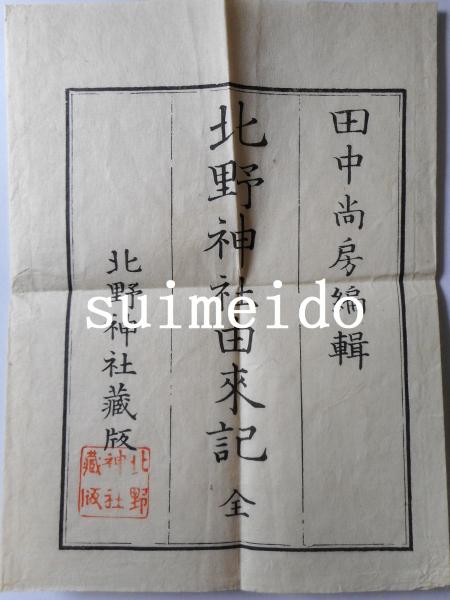 田中尚房編輯
北野神社由來記 全
北野神社藏版
北野
神社
藏版
suimeido